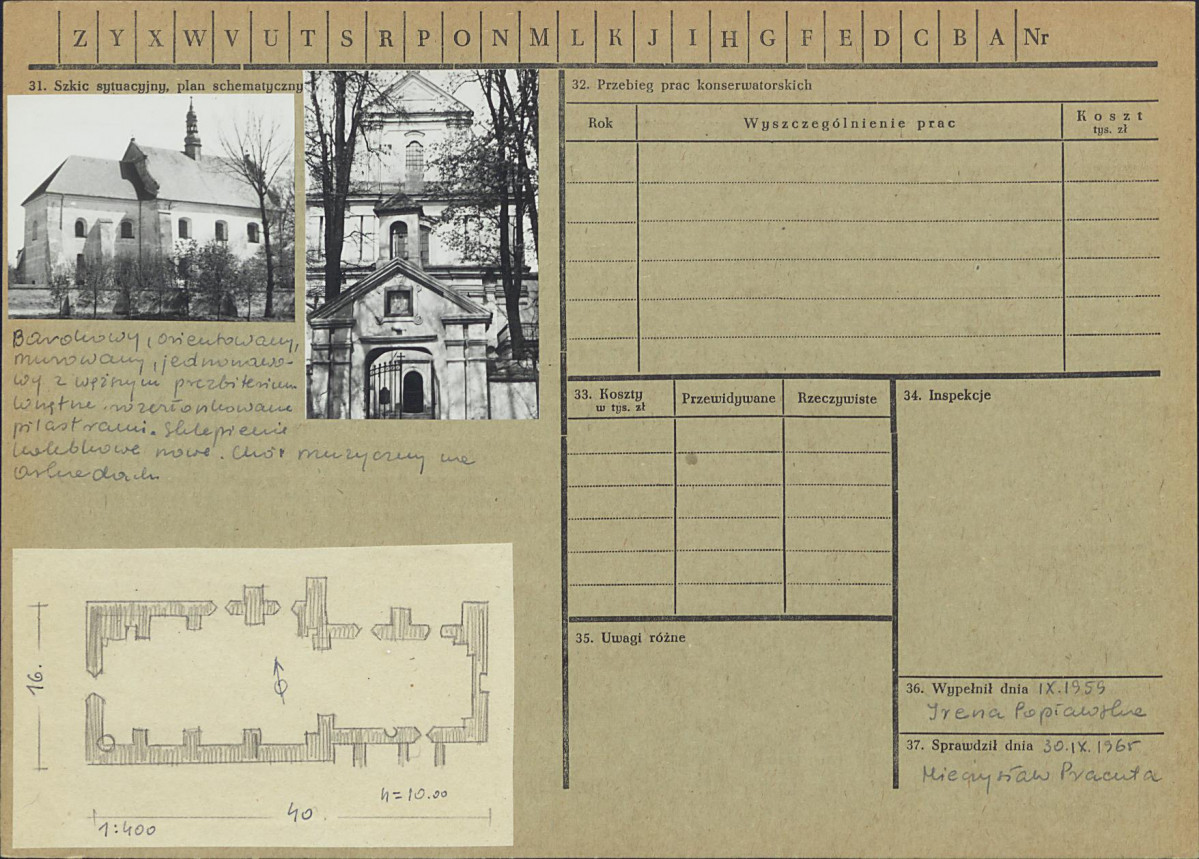 Z Y X W V U T S R P O N M L K J I H G F E D C B A Nr
31. Szkic sytuacyjny, plan schematyczny
Barokowy, orientowany,
murowany, jednonawo-
wy z węższym prezbiterium
Wnętrze rozczłonkowane
pilastrami. Sklepienie
kolebkowe nowe. Chór muzyczny na
arkadach
16.
40
h=10.00
1:400
32. Przebieg prac konserwatorskich
Rok
Wyszczególnienie prac
Koszt
tys. zł
33. Koszty
w tys. zł
Przewidywane
Rzeczywiste
34. Inspekcje
35. Uwagi różne
36. Wypełnił dnia IX.1959
Irena Popławska
37. Sprawdził dnia 30.IX.1965
Mieczysław Pracuta